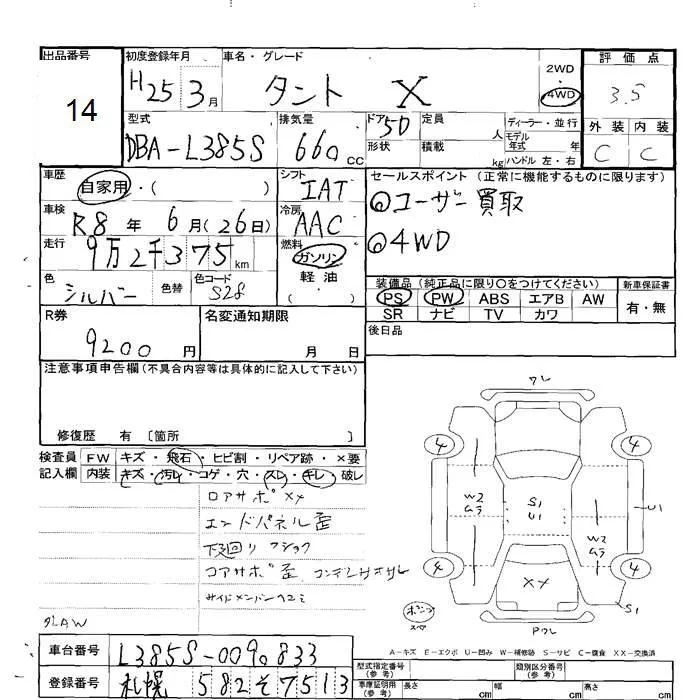 出品番号 初度登録年月 車名・グレード 評価点
14 H25 3月 タント X 2WD 4WD 3.5
型式 排気量 ドア 定員 ディーラー・並行 外装 内装
DBA-L385S 660cc 5D 人 モデル年式 年 C C
形状 積載 kg ハンドル 左・右
車歴 自家用・( ) シフト IAT セールスポイント(正常に機能するものに限ります)
車検 R8年 6月(26日) 冷房 AAC ◎ユーザー買取
走行 9万2千375km 燃料 ガソリン ◎4WD
色 シルバー 色替 色コード S28 軽油 ( )
装備品(純正品に限り○をつけてください) 新車保証書
PS PW ABS エアB AW 有・無
SR ナビ TV カワ
R券 9200円 名変通知期限 月 日 後日品
注意事項申告欄(不具合内容等は具体的に記入して下さい)
修復歴 有 〔箇所 〕
検査員 FW キズ・飛石・ヒビ割・リペア跡・×要
記入欄 内装 キズ・汚れ・コゲ・穴・スレ・キレ・破レ
ロアサポ XX
エンドパネル歪
下廻り フショク
コアサポ歪
サイドメンバーヘコミ
ワレ
4 4
W2 S1 W2 U1
U1
4 XX 4
S1
ワレ
A-キズ E-エクボ U-凹み W-補修跡 S-サビ C-腐食 XX-交換済
車台番号 L385S-0090833
登録番号 札幌 582 そ 7513
型式指定番号(参考) 類別区分番号(参考)
車庫証明用(参考) 長さ cm 幅 cm 高さ cm